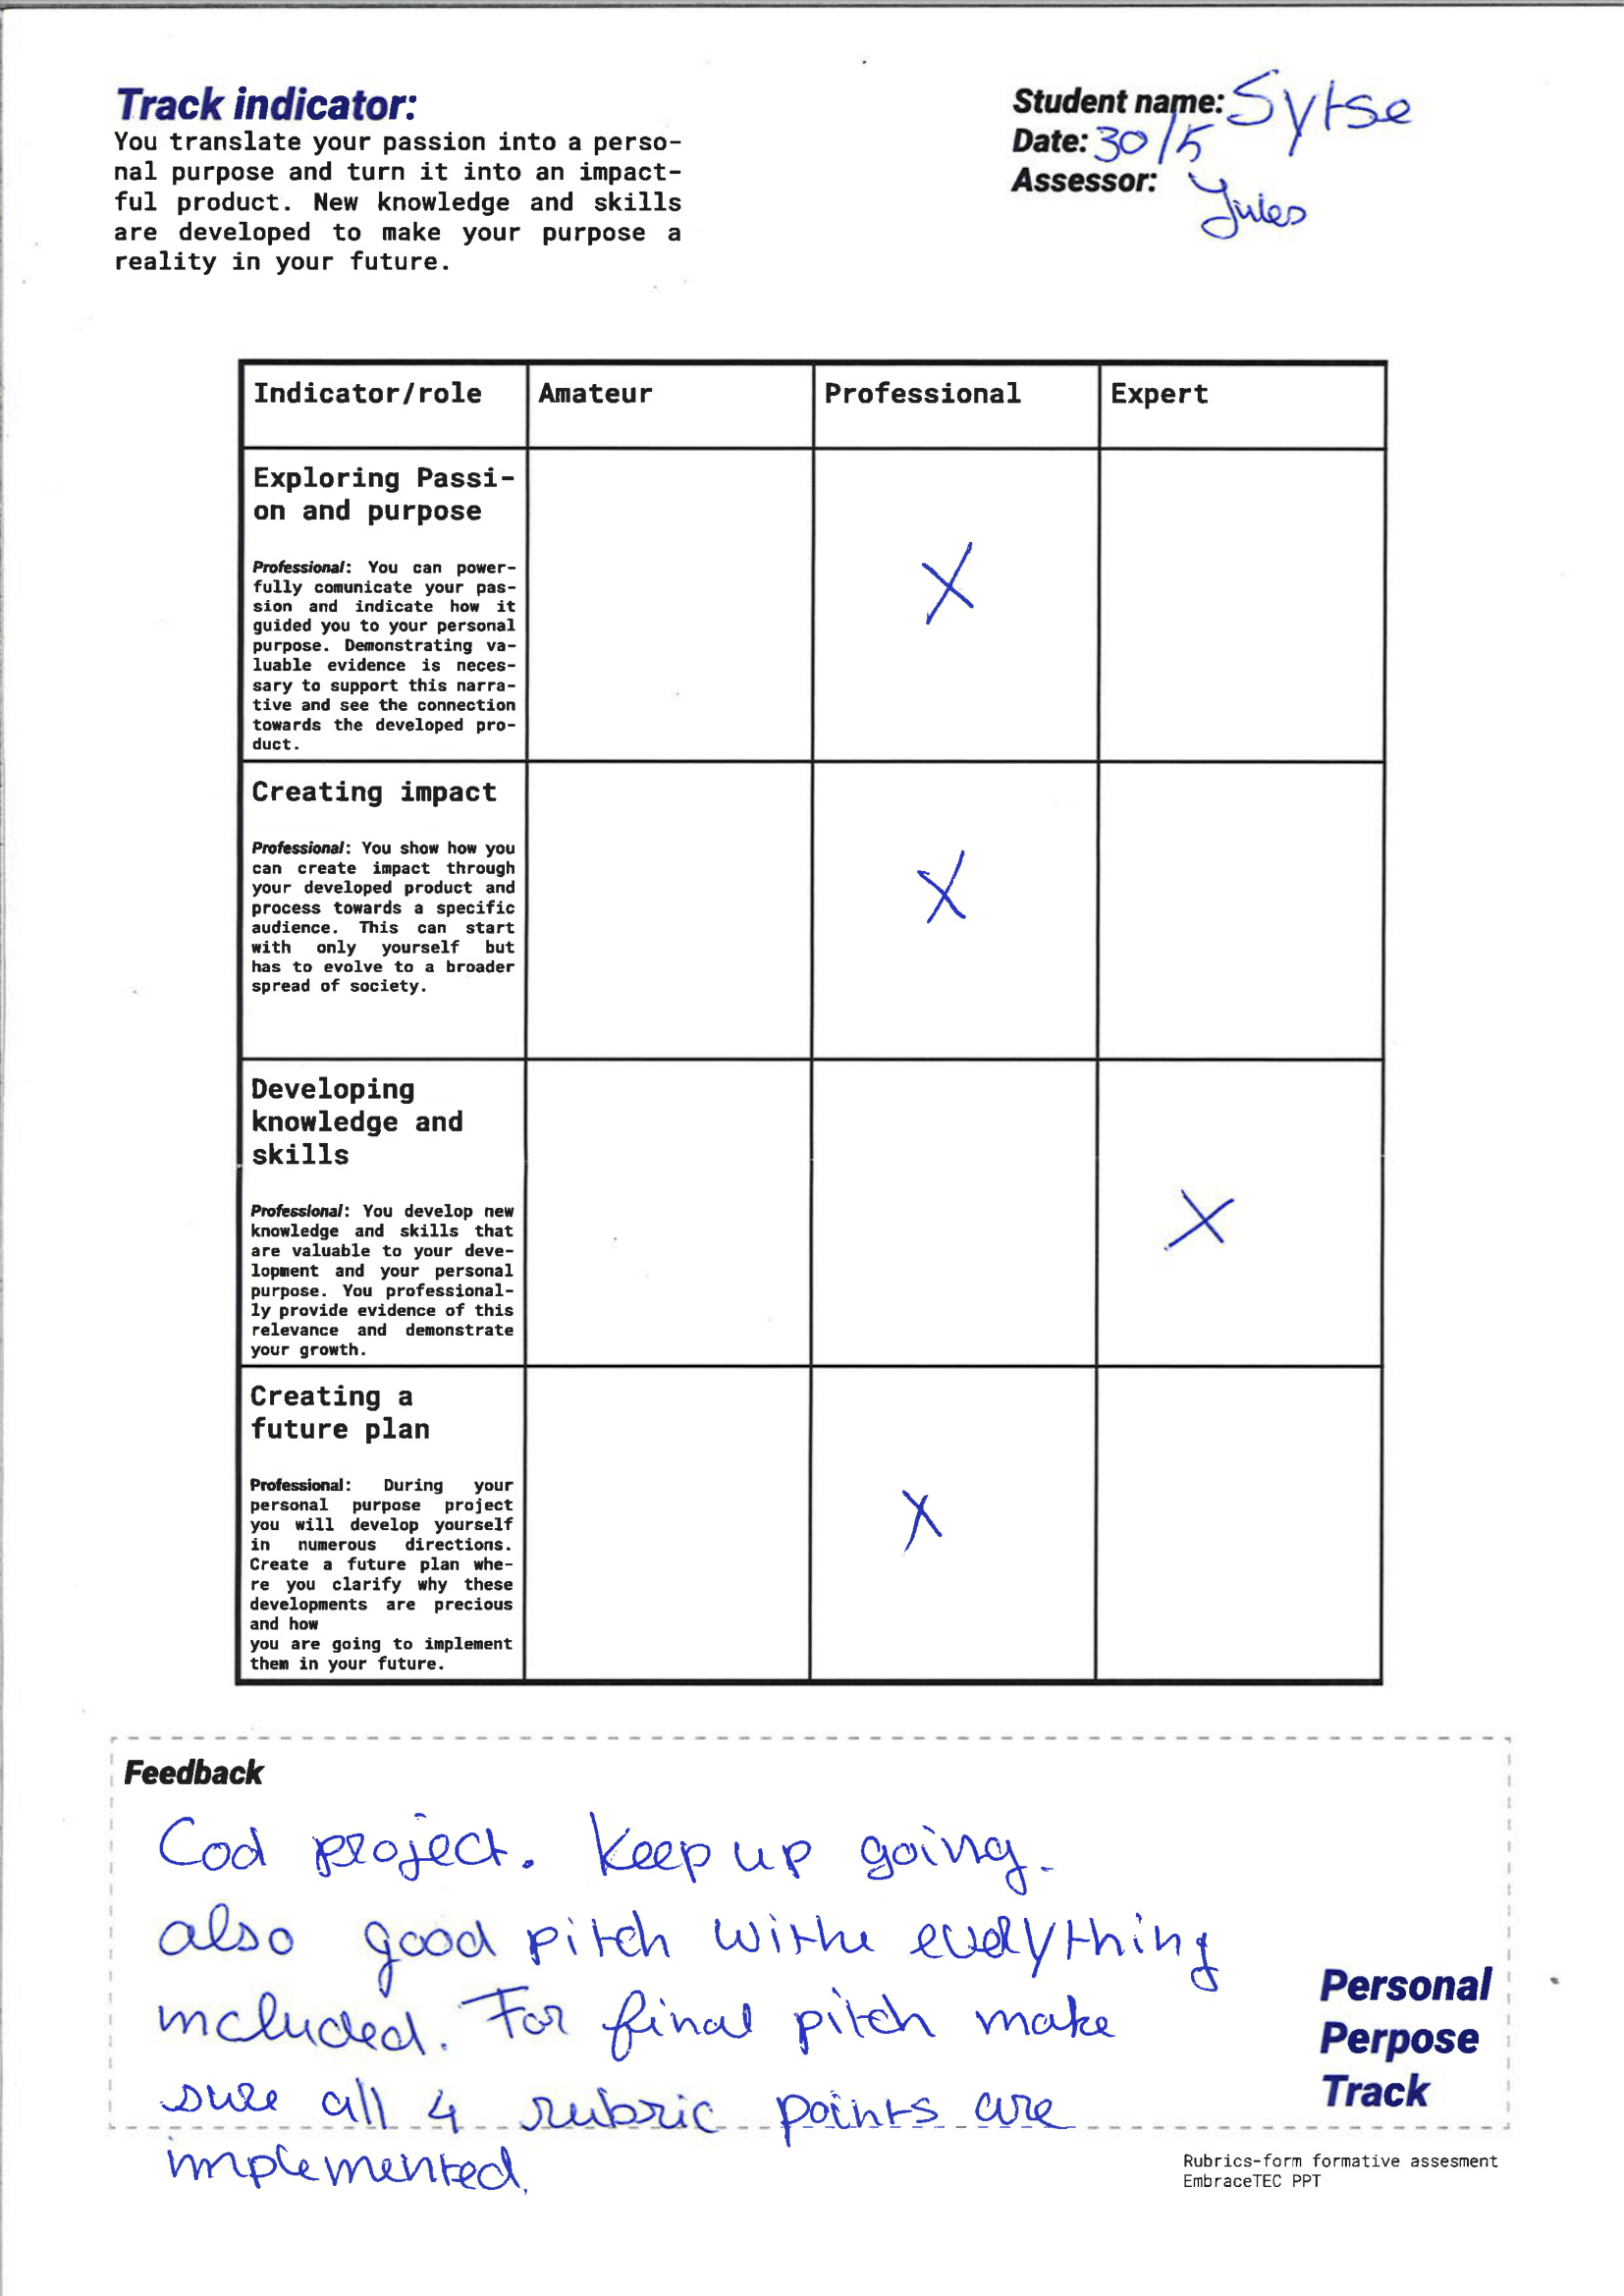 Track indicator:
You translate your passion into a perso-
nal purpose and turn it into an impact-
ful product. New knowledge and skills
are developed to make your purpose a
reality in your future.
Student name: Sytse
Date: 30/5
Assessor: Jules
Indicator/role Amateur Professional Expert
Exploring Passi-
on and purpose
Professional: You can power-
fully comunicate your pas-
sion and indicate how it
guided you to your personal
purpose. Demonstrating va-
luable evidence is neces-
sary to support this narra-
tive and see the connection
towards the developed pro-
duct.
X
Creating impact
Professional: You show how you
can create impact through
your developed product and
process towards a specific
audience. This can start
with only yourself but
has to evolve to a broader
spread of society.
X
Developing
knowledge and
skills
Professional: You develop new
knowledge and skills that
are valuable to your deve-
lopment and your personal
purpose. You professional-
ly provide evidence of this
relevance and demonstrate
your growth.
X
Creating a
future plan
Professional: During your
personal purpose project
you will develop yourself
in numerous directions.
Create a future plan whe-
re you clarify why these
developments are precious
and how
you are going to implement
them in your future.
X
Feedback
Cod project. Keep up going.
also good pitch withe everything
included. For final pitch make
sure all 4 rubric points are
implemented.
Personal
Perpose
Track
Rubrics-form formative assesment
EmbraceTEC PPT